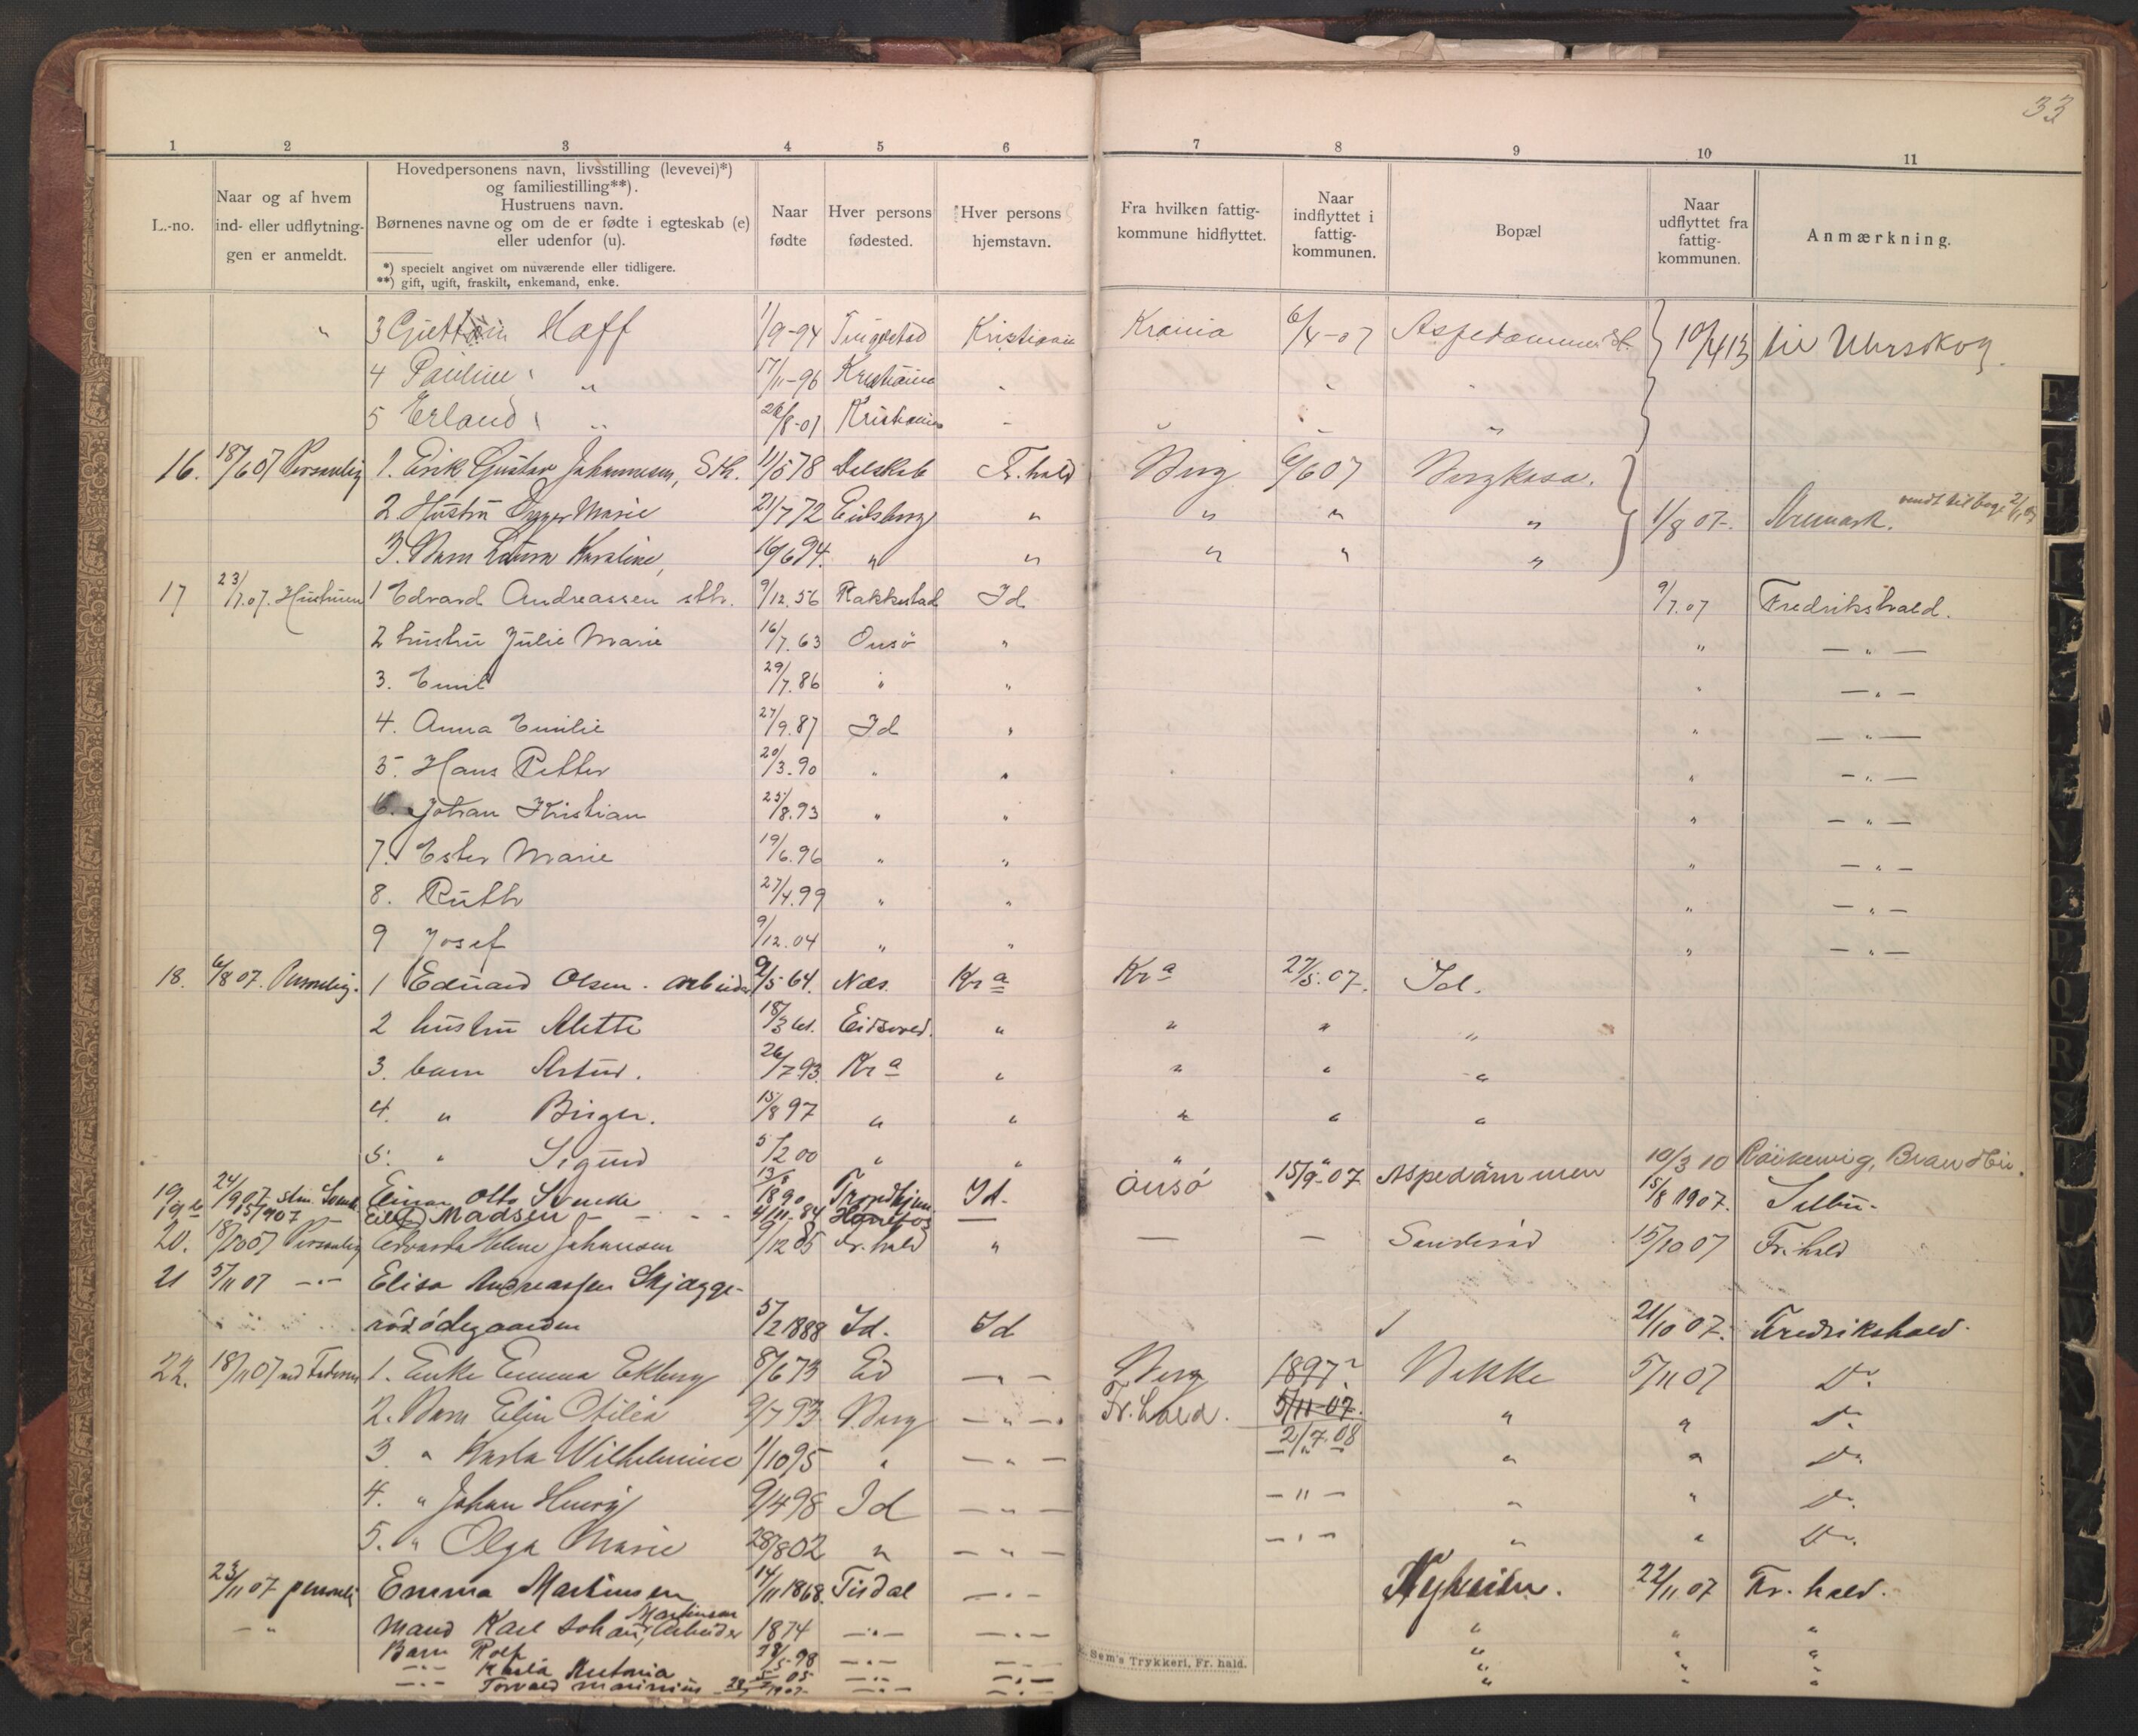 33
1 2 3 4 5 6 7 8 9 10 11
L.-no.
Naar og af hvem
ind- eller udflytnin-
gen er anmeldt.
Hovedpersonens navn, livsstilling (levevei)*)
og familiestilling**).
Hustruens navn.
Børnenes navne og om de er fødte i egteskab (e)
eller udenfor (u).
*) specielt angivet om nuværende eller tidligere.
**) gift, ugift, fraskilt, enkemand, enke.
Naar
fødte
Hver persons
fødested.
Hver persons
hjemstavn.
Fra hvilken fattig-
kommune hidflyttet.
Naar
indflyttet i
fattig-
kommunen.
Bopæl
Naar
udflyttet fra
fattig-
kommunen.
Anmærkning.
" 3 Haff 1/9-94 Tingelstad Kristiania Krania 6/4-07 Aspedammen st. 10/4 13 til Uhrskog.
4 Pauline " 17/11-96 Kristiania " " "
5 Erland " 26/8-01 Kristiania - " " "
16. 18/6 07 Personlig 1. Erik Gustav Johannesen, Sth. 11/5 78 Dalskab Fr.hald Berg 6/6 07 Bergkasa.
2. Hustru Marie 21/7 72 Eidsberg " " " " 1/8 07. Aremark. vendt tilbage
3. Barn Laura Karoline, 16/6 94. " " " " "
17 23/7.07. Hustruen 1 Edvard Andreassen sth. 9/12.56 Rakkestad Id 9/7.07 Fredrikshald.
2 hustru Julie Marie 16/7.63 Onsö " " — " —
3. Emil 29/7.86 " " " — " —
4. Anna Emilie 27/9.87 Id " " — " —
5. Hans Petter 20/3.90 " " " — " —
6. Johan Kristian 25/8.93 " " " — " —
7. Ester Marie 19/6.96 " " " — " —
8. Ruth 27/4.99 " " " — " —
9 Josef 9/12.04 " " " — " —
18. 6/8 07. Personlig. 1 Edvard Olsen. arbeider 9/5 64. Næs. Kra Kra 27/5.07. Id.
2 hustru Alette 18/3 61. Eidsvold. " " " "
3. barn Artur. 26/7 93. Kra " " " "
4. " Birger. 15/8 97 " " " " "
5. " Sigurd 5/2 00 " " " "
19 24/9 07 Einar Otto 13/8 1890 Trondhjem Id. Onsö 15/9-07 Aspedammen 10/3 10
19b 15/ 1907 — Madsen - - - 4/11-84 Hönefos — 15/8 1907.
20. 18/10 07 Personlig Edvarda Helene Johansen 9/12 85 Fr.hald " — — 15/10 07 Fr.hald
21 5/11 07 -"- Elisa Andreassen Skjægge-
rödödegaarden 5/2 1888 Id. Id 21/10 07. Fredrikshald.
22. 18/11 07 1. Enke Emma Ekberg 8/6 73 Ed — " — Berg 1897? Bekke 5/11 07 Do.
2. Barn Elin Otilia 9/7 93 Berg — " — Fr.hald. 5/11-07. " " Do.
2/7.08
3. " Karla Wilhelmine 1/10 95 " — " — — " — " " Do.
4. " Johan Henry 9/4 98 Id — " — — " — " " Do.
5. " Olga Marie 28/8 02 " — " — — " — " " Do.
23/11 07 personlig Emma Martinsen 14/11 1868. Tisdal — " — Nyheim. 22/11 07 Fr. hald.
— " Mand Karl Johan Martinsen, Arbeider 1874 — " — — " — " " "
Barn Rolf 28/5-98 — " — — " — " " "
— " — Karla Antonia 05 — " — — " — " " "
— " — Torvald 1907- — " — — " — " " "
Sem's Trykkeri, Fr. hald.